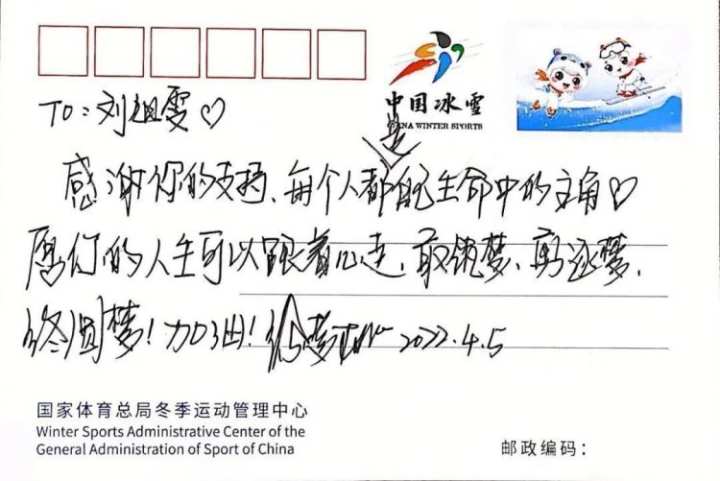 中国冰雪
CHINA WINTER SPORTS
TO：刘祖雯♡
感谢你的支持、每个人都是自己生命中的主角♡
愿你的人生可以跟着心走，敢筑梦、勇逐梦，
终圆梦！加油！ 2022.4.5
国家体育总局冬季运动管理中心
Winter Sports Administrative Center of the
General Administration of Sport of China
邮政编码：